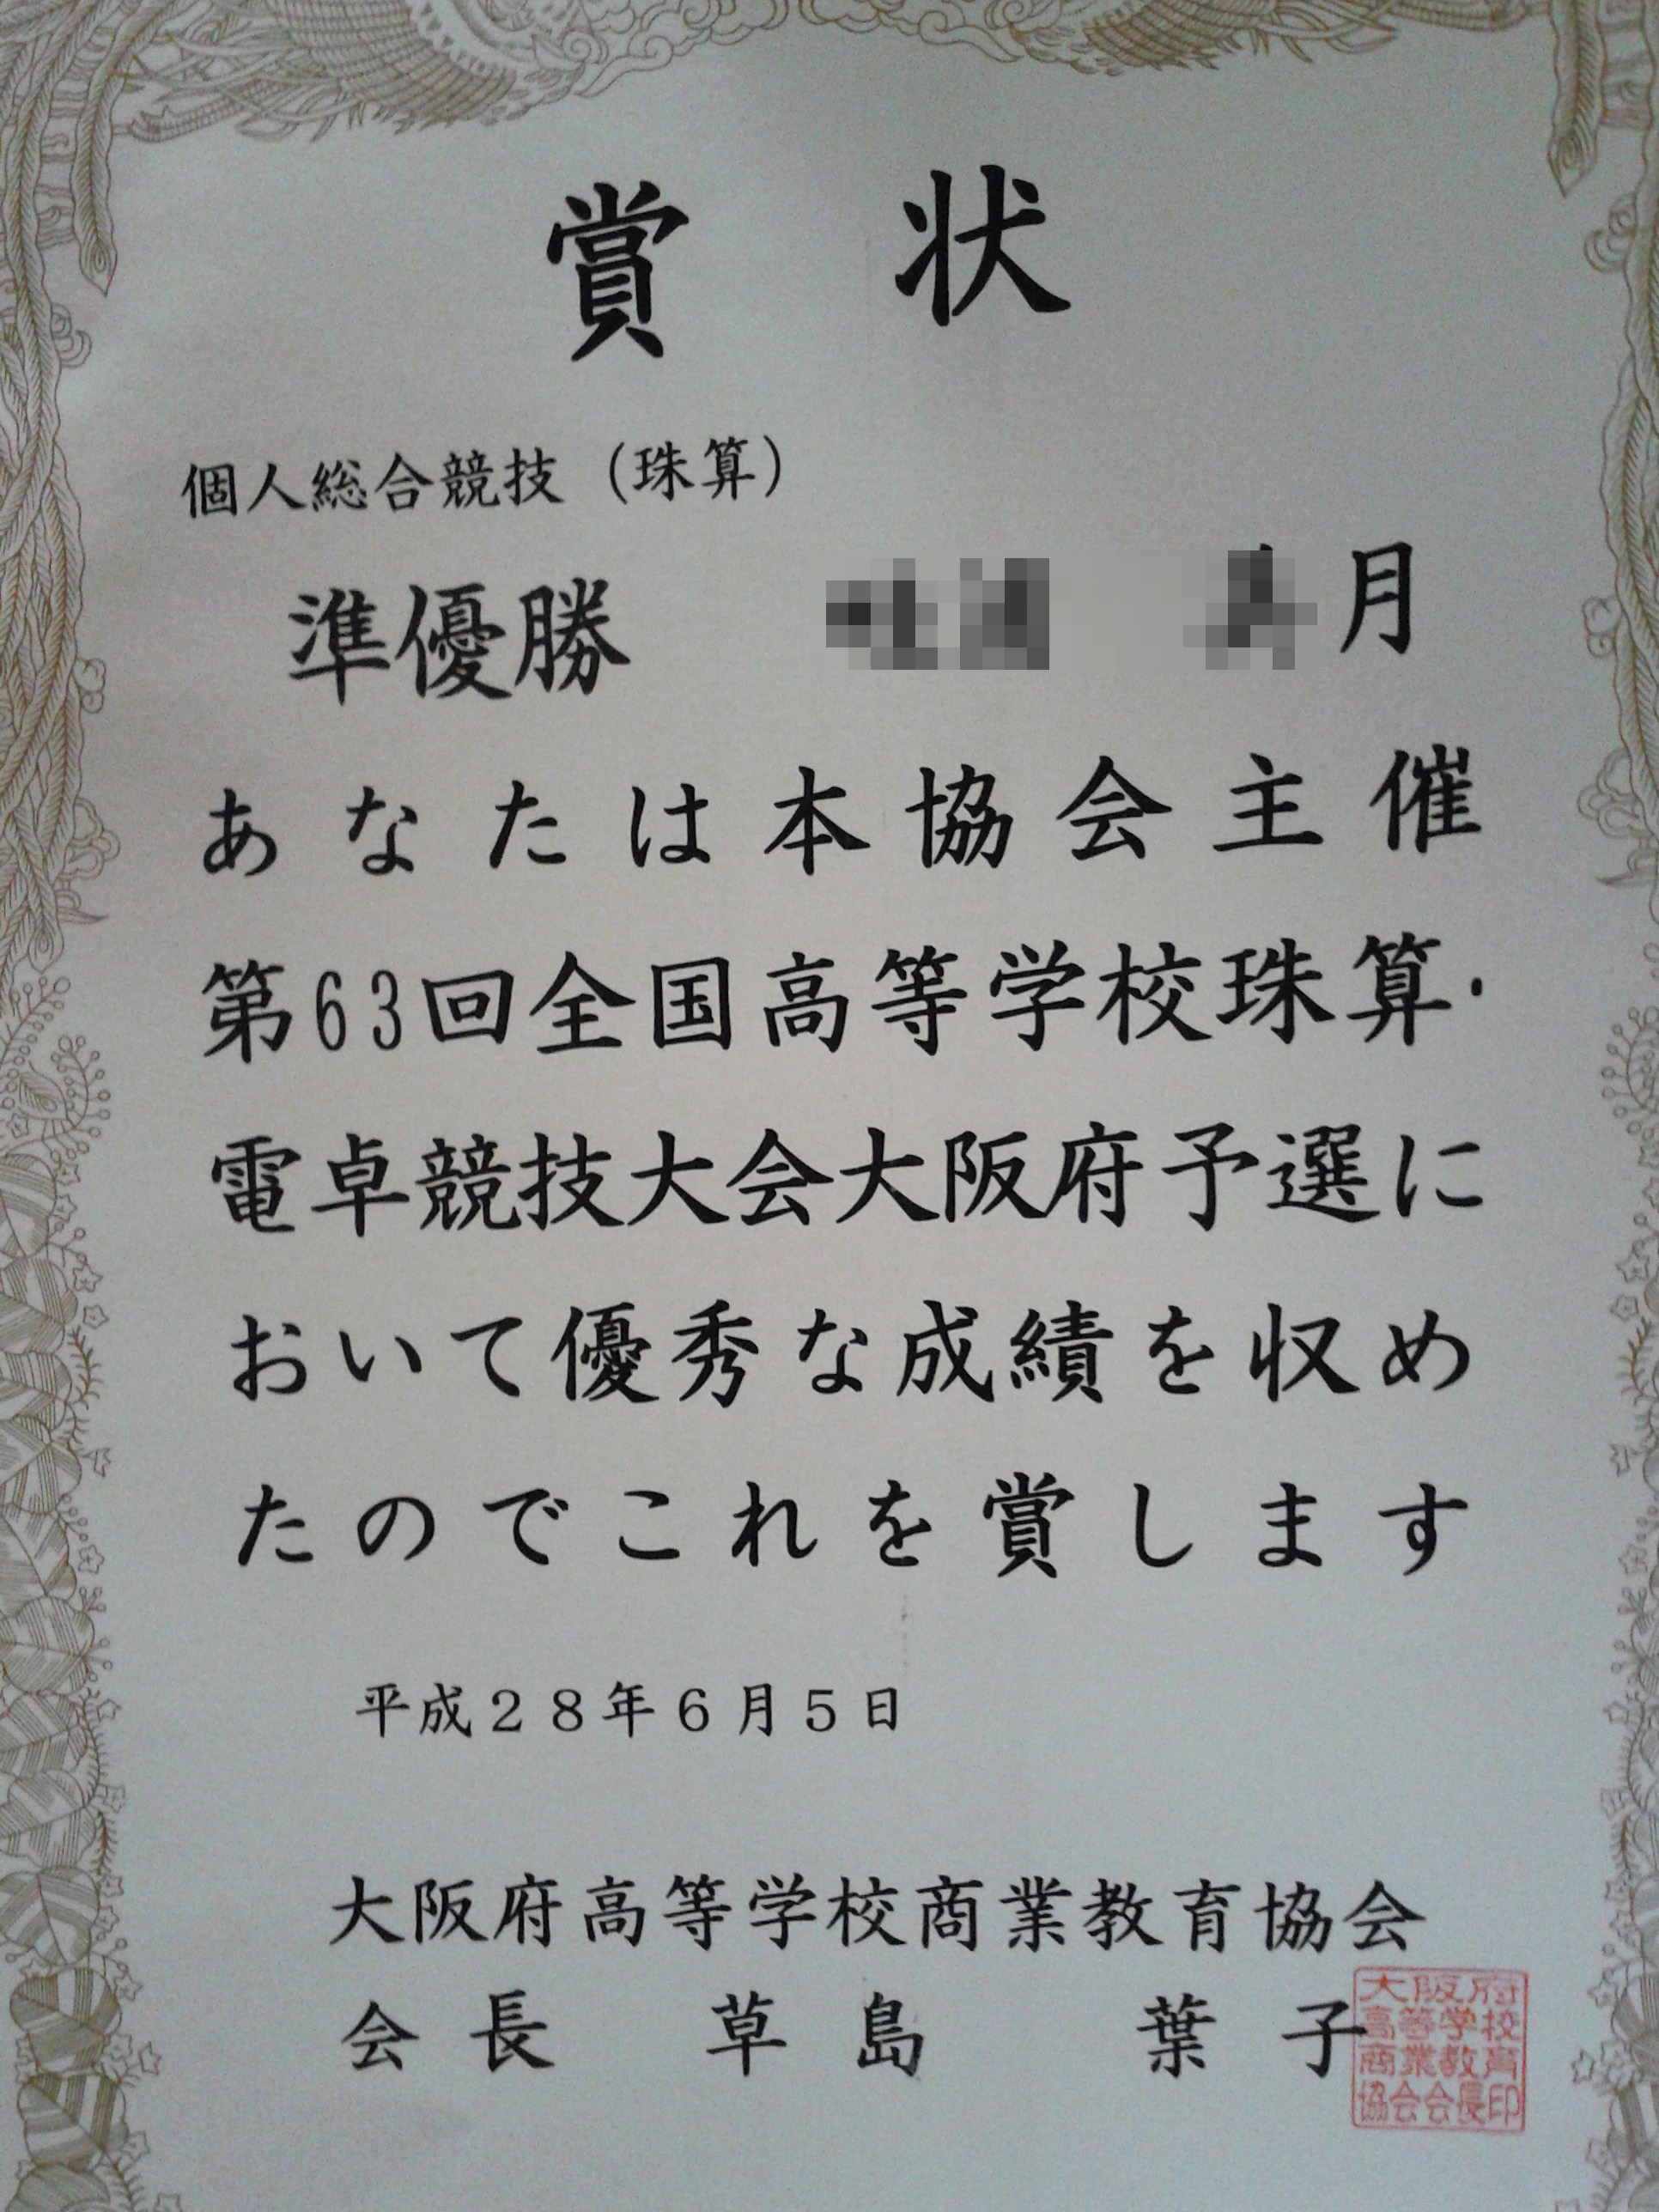 賞状
個人総合競技（珠算）
準優勝 月
あなたは本協会主催
第63回全国高等学校珠算・
電卓競技大会大阪府予選に
おいて優秀な成績を収め
たのでこれを賞します
平成２８年６月５日
大阪府高等学校商業教育協会
会長 草島 葉子
大阪府
高等学校
商業教育
協会会長印